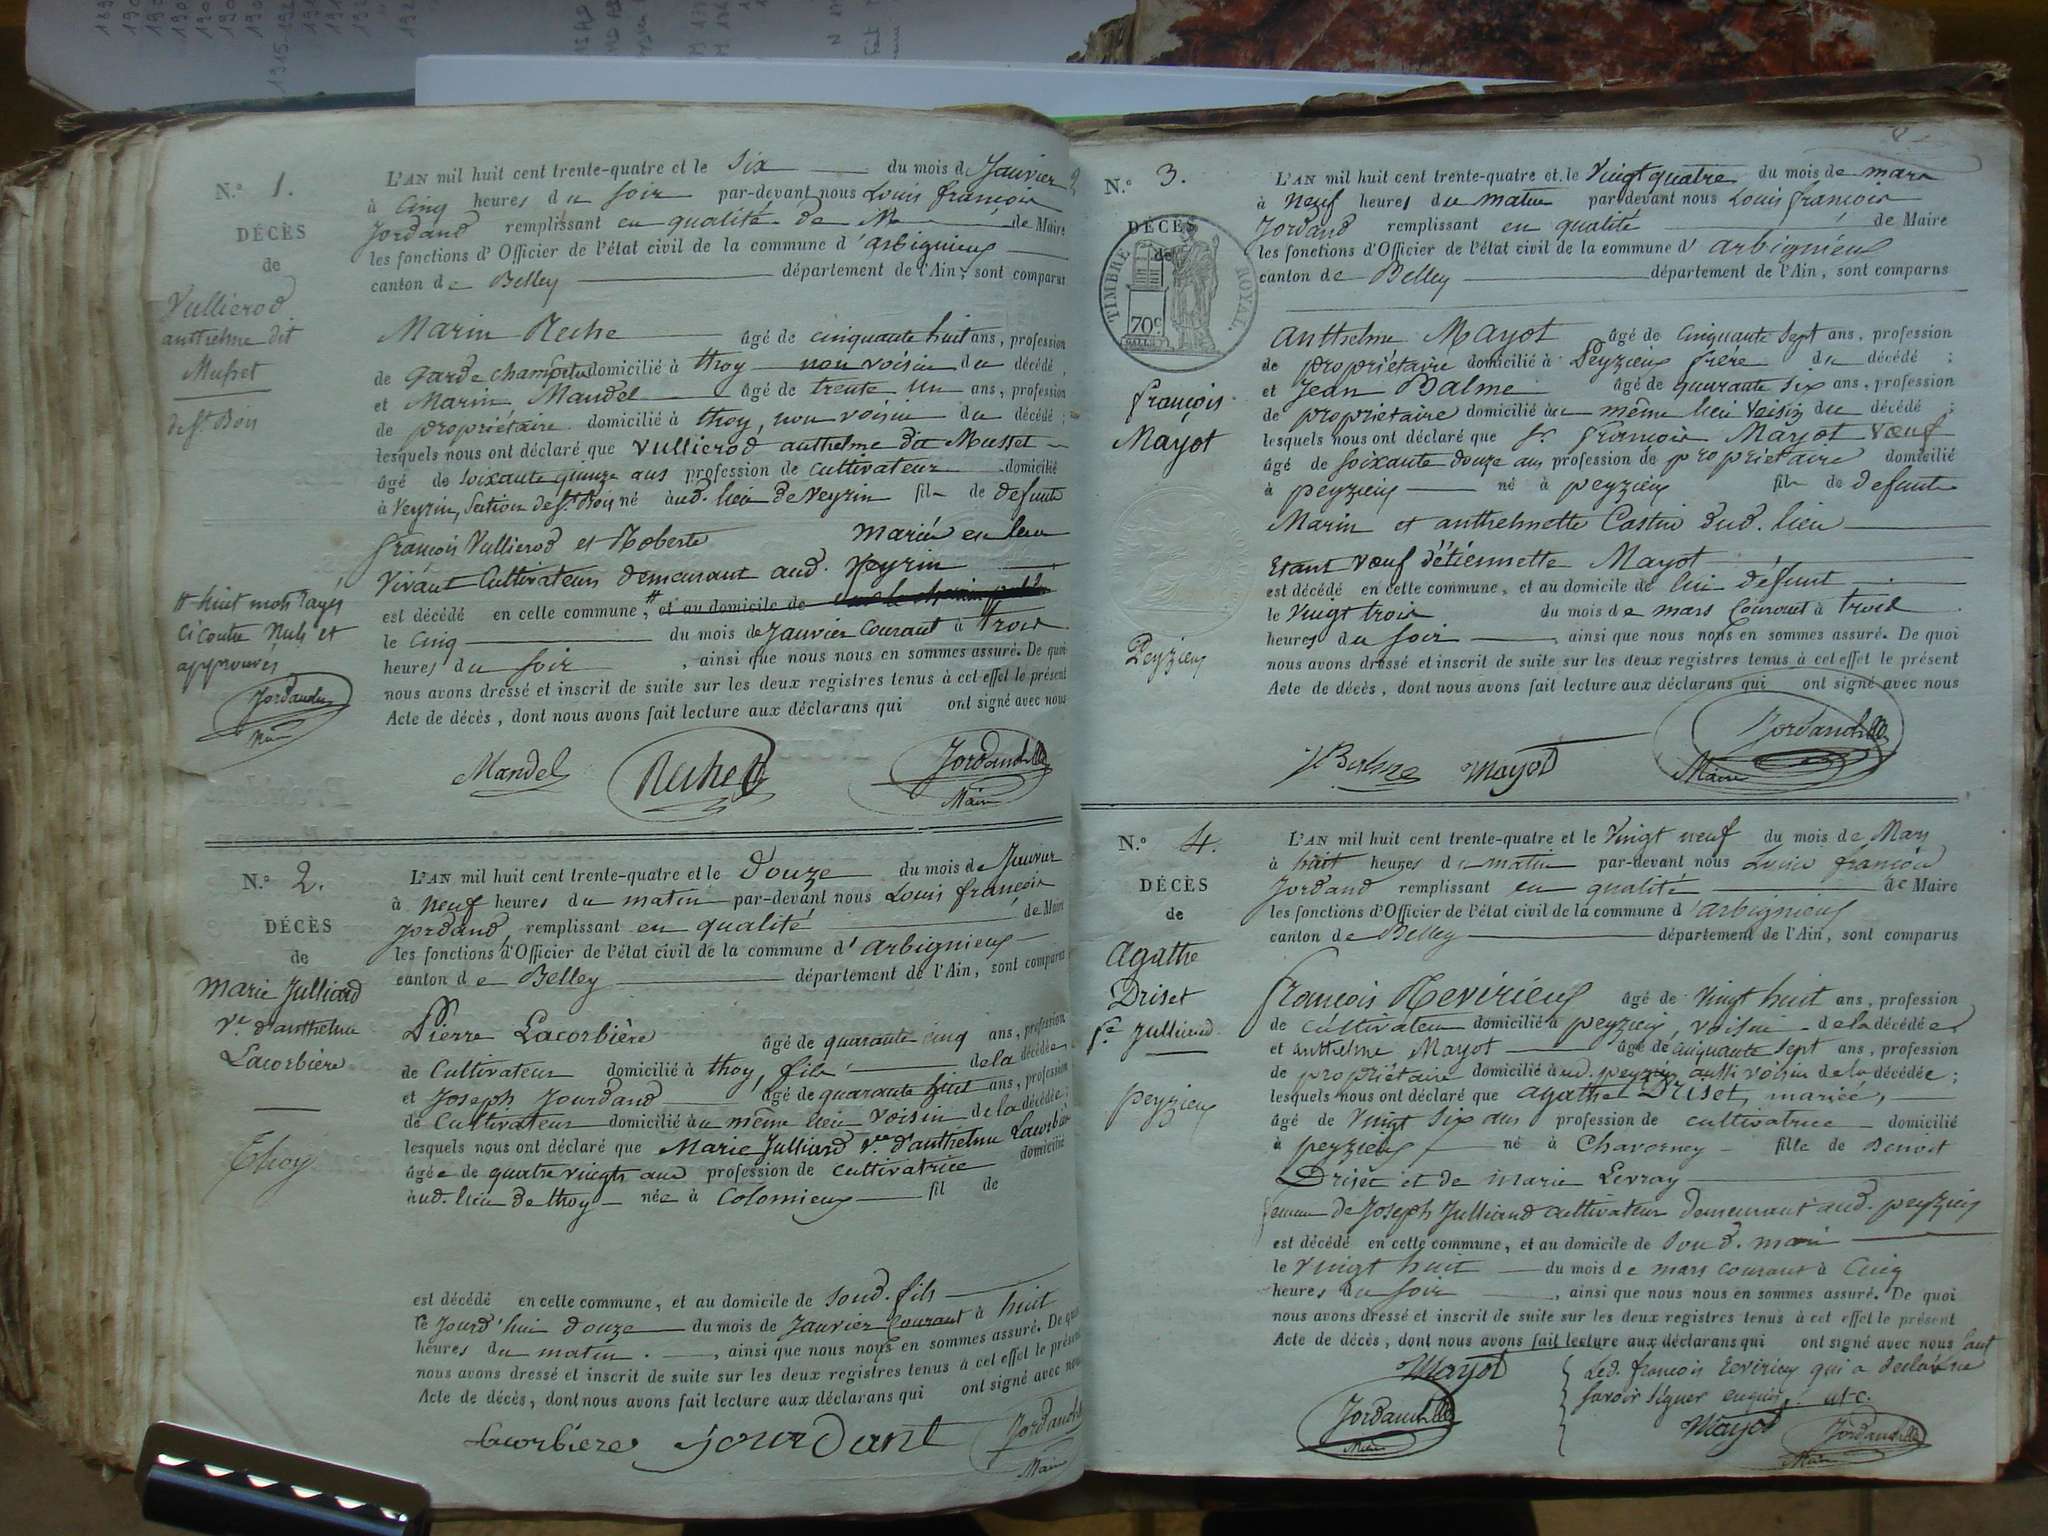 N.º 1.
DÉCÈS
de
Vullierod
anthelme dit
Musset
de St. Bois
L'AN mil huit cent trente-quatre et le Six du mois de Janvier
à Cinq heures du soir par-devant nous Louis françois
Jordand remplissant en qualité de M de Maire
les fonctions d'Officier de l'état civil de la commune d'arbignieux
canton de Belley département de l'Ain, sont comparus
Marin Reche âgé de cinquante huit ans, profession
de garde champêtre domicilié à thoy non voisin du décédé,
et Marin Mandel âgé de trente un ans, profession
de propriétaire domicilié à thoy, non voisin du décédé;
lesquels nous ont déclaré que Vullierod anthelme dit Musset
âgé de soixante quinze ans profession de cultivateur domicilié
à Veyrin, Section de St. Bois né aud. lieu de Veyrin fils de defunts
françois Vullierod et Roberte mariés en leur
vivant Cultivateurs demeurant aud. Veyrin
est décédé en cette commune, # et au domicile de sur le chemin public
le Cinq du mois de Janvier Courant à trois
heures du soir, ainsi que nous nous en sommes assuré. De quoi
nous avons dressé et inscrit de suite sur les deux registres tenus à cet effet le présent
Acte de décès, dont nous avons fait lecture aux déclarans qui ont signé avec nous
# huit mots rayés
ci contre nuls et
approuvés
Jordand
Maire
Mandel Reche Jordand
Maire
N.º 2.
DÉCÈS
de
Marie Julliard
Ve. d'anthelme
Lacorbière
Thoy
L'AN mil huit cent trente-quatre et le douze du mois de Janvier
à neuf heures du matin par-devant nous Louis françois
Jordand, remplissant en qualité de Maire
les fonctions d'Officier de l'état civil de la commune d'arbignieux
canton de Belley département de l'Ain, sont comparus
Pierre Lacorbière âgé de quarante cinq ans, profession
de Cultivateur domicilié à thoy, fils de la décédée,
et Joseph Jourdand âgé de quarante huit ans, profession
de Cultivateur domicilié au même lieu voisin de la décédée;
lesquels nous ont déclaré que Marie Julliard Ve. d'anthelme Lacorbière
âgée de quatre vingts ans profession de cultivatrice domicilié
aud. lieu de thoy née à Colomieux fil de
est décédé en cette commune, et au domicile de soud. fils
le Jourd'hui douze du mois de Janvier Courant à huit
heures du matin, ainsi que nous nous en sommes assuré. De quoi
nous avons dressé et inscrit de suite sur les deux registres tenus à cet effet le présent
Acte de décès, dont nous avons fait lecture aux déclarans qui ont signé avec nous
Lacorbiere Jourdant Jordand
Maire
N.º 3.
DÉCÈS
de
TIMBRE ROYAL.
70c
françois
Mayot
Peyzieu
L'AN mil huit cent trente-quatre et le Vingt quatre du mois de mars
à neuf heures du matin par-devant nous Louis françois
Jordand remplissant en qualité de Maire
les fonctions d'Officier de l'état civil de la commune d'arbignieux
canton de Belley département de l'Ain, sont comparus
Anthelme Mayot âgé de cinquante sept ans, profession
de propriétaire domicilié à Peyzieu frère du décédé;
et Jean Balme âgé de quarante six ans, profession
de propriétaire domicilié au même lieu voisin du décédé;
lesquels nous ont déclaré que Sr. françois Mayot Vœuf
âgé de soixante douze ans profession de propriétaire domicilié
à peyzieu né à peyzieu fils de defunts
Marin et anthelmette Castin dud. lieu
Etant vœuf d'étiennette Mayot
est décédé en cette commune, et au domicile de lui défunt
le Vingt trois du mois de mars Courant à trois
heures du soir, ainsi que nous nous en sommes assuré. De quoi
nous avons dressé et inscrit de suite sur les deux registres tenus à cet effet le présent
Acte de décès, dont nous avons fait lecture aux déclarans qui ont signé avec nous
J Balme Mayot Jordand
Maire
N.º 4.
DÉCÈS
de
Agathe
Driset
fe. Julliard
peyzieu
L'AN mil huit cent trente-quatre et le Vingt neuf du mois de Mars
à huit heures du matin par-devant nous Louis françois
Jordand remplissant en qualité de Maire
les fonctions d'Officier de l'état civil de la commune d'arbignieux
canton de Belley département de l'Ain, sont comparus
françois Revirieux âgé de vingt huit ans, profession
de cultivateur domicilié à peyzieu, voisin de la décédée
et anthelme Mayot âgé de cinquante sept ans, profession
de propriétaire domicilié aud. peyzieu aussi voisin de la décédée;
lesquels nous ont déclaré que agathe Driset, mariée,
âgé de vingt six ans profession de cultivatrice domicilié
à peyzieu né à Chavorney fille de Benoit
Driset et de marie Levray
femme de Joseph Julliard cultivateur demeurant aud. peyzieu
est décédé en cette commune, et au domicile de soud. mari
le vingt huit du mois de mars courant à Cinq
heures du soir, ainsi que nous nous en sommes assuré. De quoi
nous avons dressé et inscrit de suite sur les deux registres tenus à cet effet le présent
Acte de décès, dont nous avons fait lecture aux déclarans qui ont signé avec nous sauf
Mayot led. francois Revirieux qui a déclaré ne
savoir signer enquis
Jordand Mayot Jordand
Maire Maire